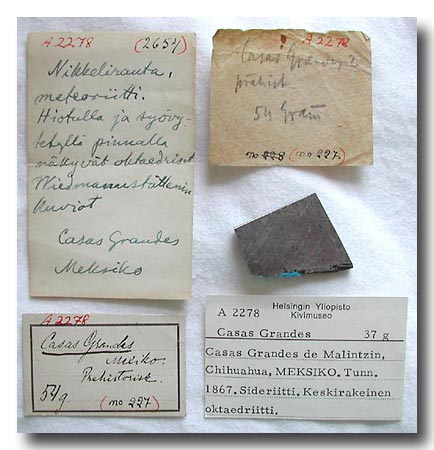 A 2278 (2654)
Nikkelirauta,
meteoriitti.
Hiotulla ja syövy-
tetyllä pinnalla
näkyvät oktaedriset
Widmannstättenin
kuviot
Casas Grandes
Meksiko
A 2278
Casas Grandes
54 Gram
no 228 (no 227.)
A 2278
Casas Grandes
Mexiko.
Prehistorisk.
54g. (no 227)
Helsingin Yliopisto
A 2278 Kivimuseo
Casas Grandes 37 g
Casas Grandes de Malintzin,
Chihuahua, MEKSIKO. Tunn.
1867. Sideriitti. Keskirakeinen
oktaedriitti.